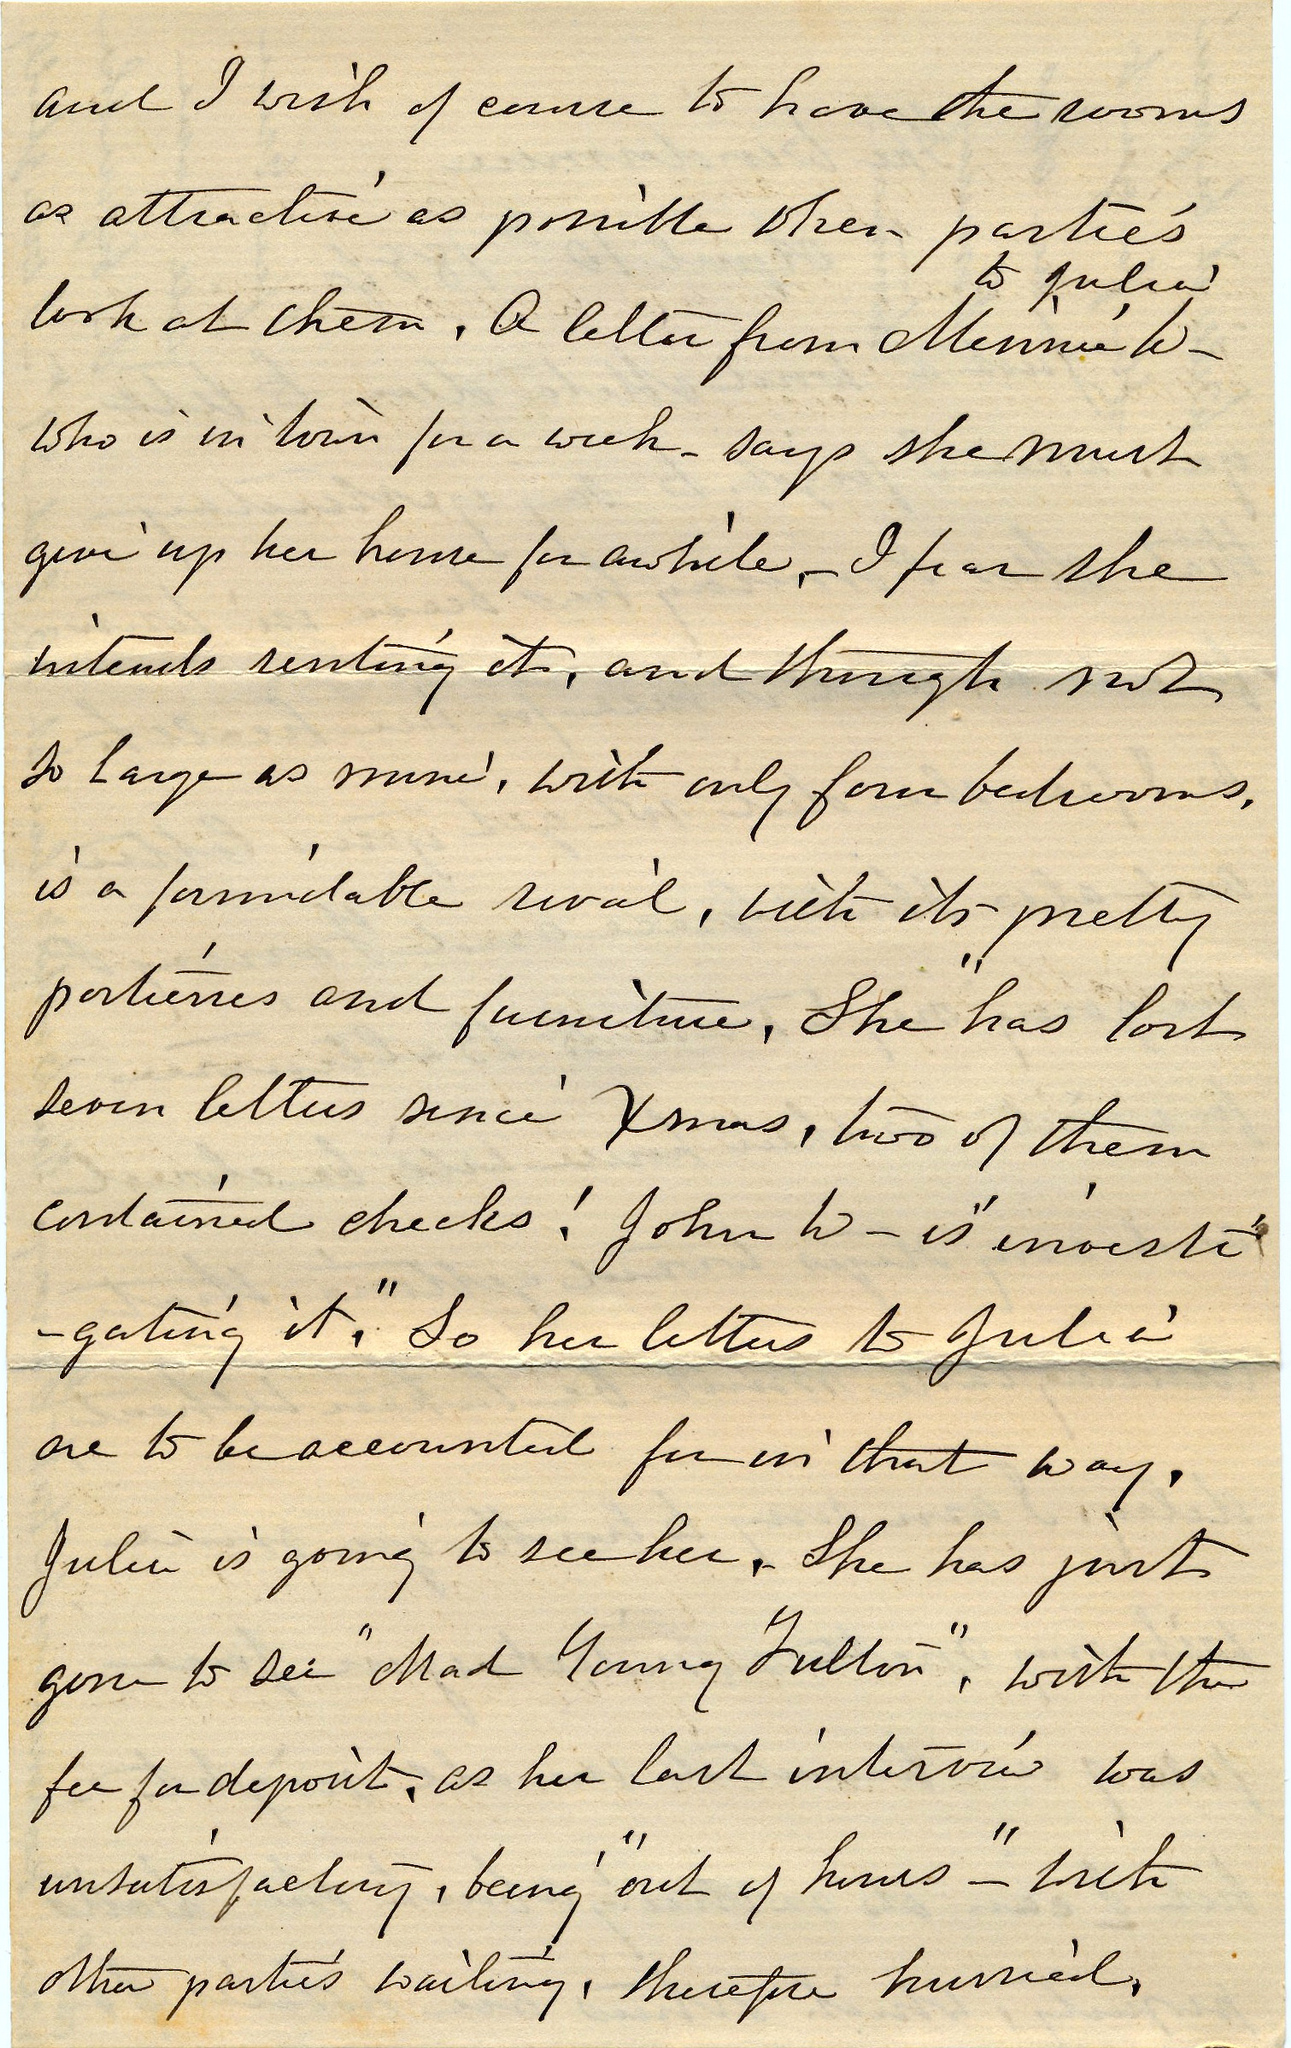 and I wish of course to have the rooms
as attractive as possible when parties
to Julia
look at them. A letter from Minnie W-
who is in town for a week - says she must
give up her home for awhile, - I fear she
intends renting it, and though not
so large as mine, with only four bedrooms,
is a formidable rival, with its pretty
portieres and furniture. She "has lost
seven letters since Xmas, two of them
contained checks! John W - is "investi
-gating it." So her letters to Julia
are to be accounted for in that way.
Julia is going to see her. - She has just
gone to see "Mad Young Fulton", with the
fee for deposit, as her last interview was
unsatisfactory, being "out of hours" - with
other parties waiting, therefore hurried.